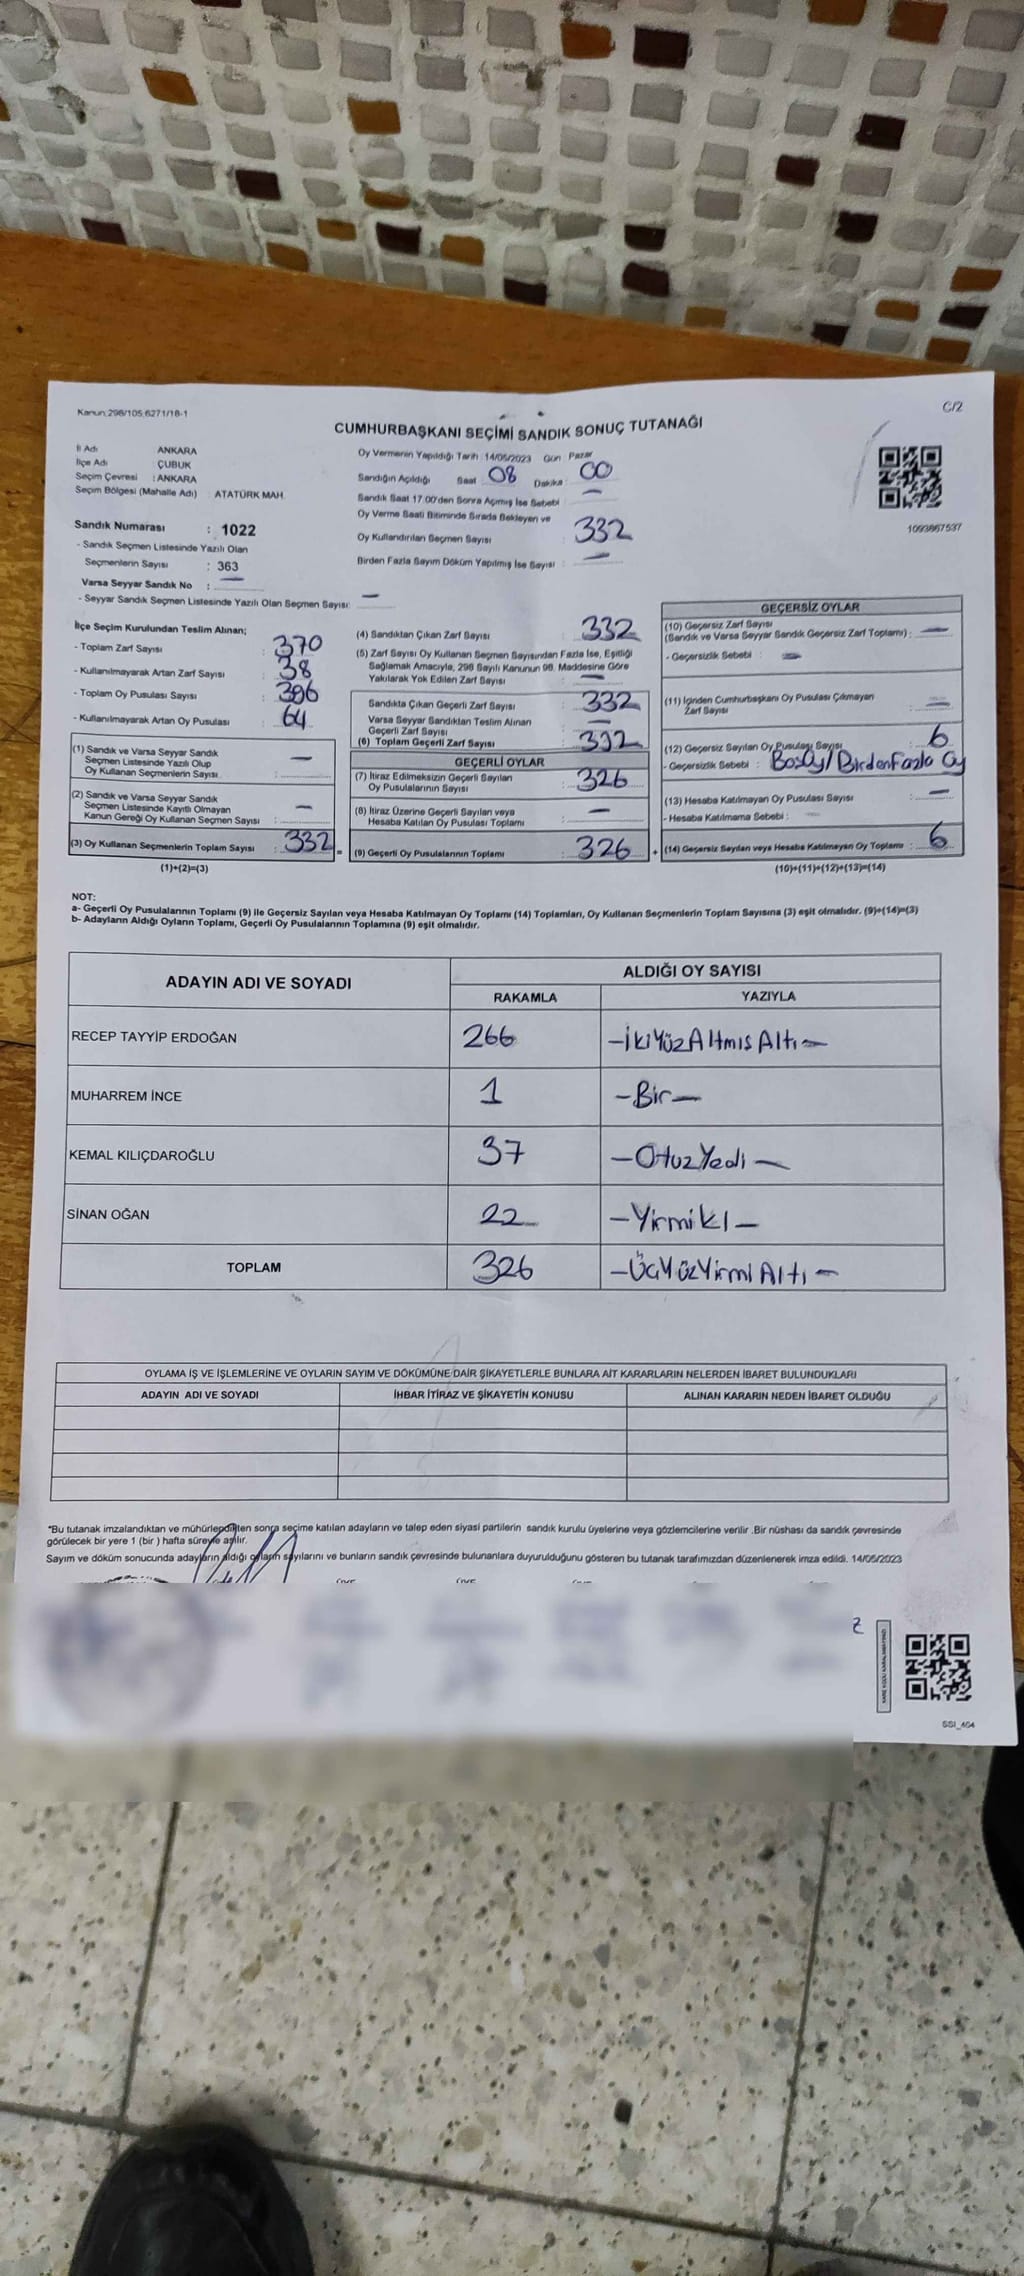 Kanun:298/105,6271/18-1
C/2
CUMHURBAŞKANI SEÇİMİ SANDIK SONUÇ TUTANAĞI
İl Adı ANKARA
İlçe Adı ÇUBUK
Seçim Çevresi : ANKARA
Seçim Bölgesi (Mahalle Adı) : ATATÜRK MAH.
Sandık Numarası : 1022
- Sandık Seçmen Listesinde Yazılı Olan
Seçmenlerin Sayısı : 363
Varsa Seyyar Sandık No : —
- Seyyar Sandık Seçmen Listesinde Yazılı Olan Seçmen Sayısı: —
Oy Vermenin Yapıldığı Tarih :14/05/2023 Gün Pazar
Sandığın Açıldığı Saat 08 Dakika : 00
Sandık Saat 17.00'den Sonra Açmış İse Sebebi : —
Oy Verme Saati Bitiminde Sırada Bekleyen ve
Oy Kullandırılan Seçmen Sayısı : 332
Birden Fazla Sayım Döküm Yapılmış İse Sayısı : —
1093867537
İlçe Seçim Kurulundan Teslim Alınan;
- Toplam Zarf Sayısı : 370
- Kullanılmayarak Artan Zarf Sayısı : 38
- Toplam Oy Pusulası Sayısı : 396
- Kullanılmayarak Artan Oy Pusulası : 64
(1) Sandık ve Varsa Seyyar Sandık
Seçmen Listesinde Yazılı Olup
Oy Kullanan Seçmenlerin Sayısı : —
(2) Sandık ve Varsa Seyyar Sandık
Seçmen Listesinde Kayıtlı Olmayan
Kanun Gereği Oy Kullanan Seçmen Sayısı : —
(3) Oy Kullanan Seçmenlerin Toplam Sayısı : 332 =
(1)+(2)=(3)
(4) Sandıktan Çıkan Zarf Sayısı : 332
(5) Zarf Sayısı Oy Kullanan Seçmen Sayısından Fazla İse, Eşitliği
Sağlamak Amacıyla, 298 Sayılı Kanunun 98. Maddesine Göre
Yakılarak Yok Edilen Zarf Sayısı : —
Sandıkta Çıkan Geçerli Zarf Sayısı : 332
Varsa Seyyar Sandıktan Teslim Alınan
Geçerli Zarf Sayısı : —
(6) Toplam Geçerli Zarf Sayısı : 332
GEÇERLİ OYLAR
(7) İtiraz Edilmeksizin Geçerli Sayılan
Oy Pusulalarının Sayısı : 326
(8) İtiraz Üzerine Geçerli Sayılan veya
Hesaba Katılan Oy Pusulası Toplamı : —
(9) Geçerli Oy Pusulalarının Toplamı : 326 +
GEÇERSİZ OYLAR
(10) Geçersiz Zarf Sayısı
(Sandık ve Varsa Seyyar Sandık Geçersiz Zarf Toplamı) : —
- Geçersizlik Sebebi : —
(11) İçinden Cumhurbaşkanı Oy Pusulası Çıkmayan
Zarf Sayısı : —
(12) Geçersiz Sayılan Oy Pusulası Sayısı : 6
- Geçersizlik Sebebi : BosOy/BirdenFazla Oy
(13) Hesaba Katılmayan Oy Pusulası Sayısı : —
- Hesaba Katılmama Sebebi : —
(14) Geçersiz Sayılan veya Hesaba Katılmayan Oy Toplamı : 6
(10)+(11)+(12)+(13)=(14)
NOT:
a- Geçerli Oy Pusulalarının Toplamı (9) ile Geçersiz Sayılan veya Hesaba Katılmayan Oy Toplamı (14) Toplamları, Oy Kullanan Seçmenlerin Toplam Sayısına (3) eşit olmalıdır. (9)+(14)=(3)
b- Adayların Aldığı Oyların Toplamı, Geçerli Oy Pusulalarının Toplamına (9) eşit olmalıdır.
ADAYIN ADI VE SOYADI ALDIĞI OY SAYISI
RAKAMLA YAZIYLA
RECEP TAYYİP ERDOĞAN 266 -İkiYüzAltmısAltı-
MUHARREM İNCE 1 -Bir-
KEMAL KILIÇDAROĞLU 37 -OtuzYedi-
SİNAN OĞAN 22 -Yirmikı-
TOPLAM 326 -ÜçYüzYirmiAltı-
OYLAMA İŞ VE İŞLEMLERİNE VE OYLARIN SAYIM VE DÖKÜMÜNE DAİR ŞİKAYETLERLE BUNLARA AİT KARARLARIN NELERDEN İBARET BULUNDUKLARI
ADAYIN ADI VE SOYADI İHBAR İTİRAZ VE ŞİKAYETİN KONUSU ALINAN KARARIN NEDEN İBARET OLDUĞU
*Bu tutanak imzalandıktan ve mühürlendikten sonra seçime katılan adayların ve talep eden siyasi partilerin sandık kurulu üyelerine veya gözlemcilerine verilir .Bir nüshası da sandık çevresinde
görülecek bir yere 1 (bir ) hafta süreyle asılır.
Sayım ve döküm sonucunda adayların aldığı oyların sayılarını ve bunların sandık çevresinde bulunanlara duyurulduğunu gösteren bu tutanak tarafımızdan düzenlenerek imza edildi. 14/05/2023
SSI_464